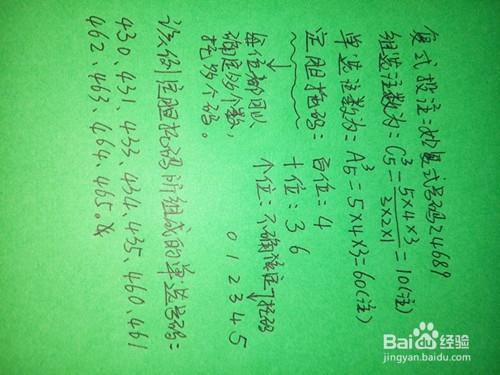 复式投注:如复式号码24689
组选注数为:C₅³=5×4×3/3×2×1=10(注)
单选注数为:A₅³=5×4×3=60(注)
定胆拖码:百位:4
十位:3 6
个位:不确定
0 1 2 3 4 5
每位都可以
确定多个数,
拖多个码。
该例定胆拖码所组成的单选号码:
430、431、433、434、435、460、461
462、463、464、465。
Bai度经验
jingyan.baidu.com